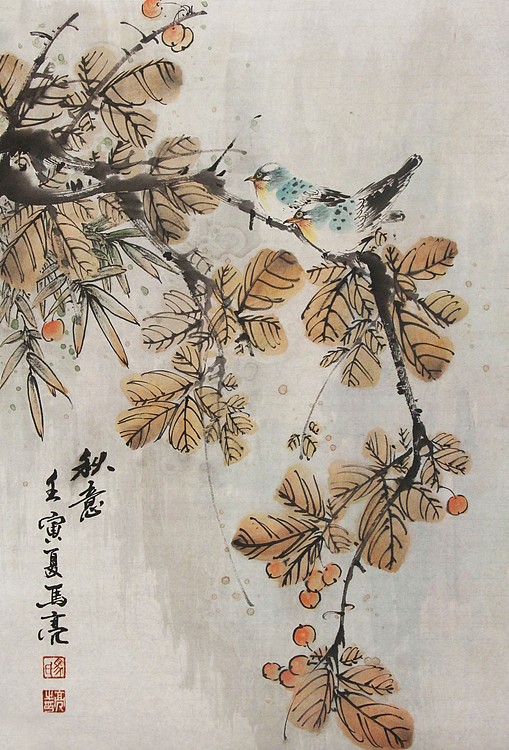 秋意
壬寅夏馬亮